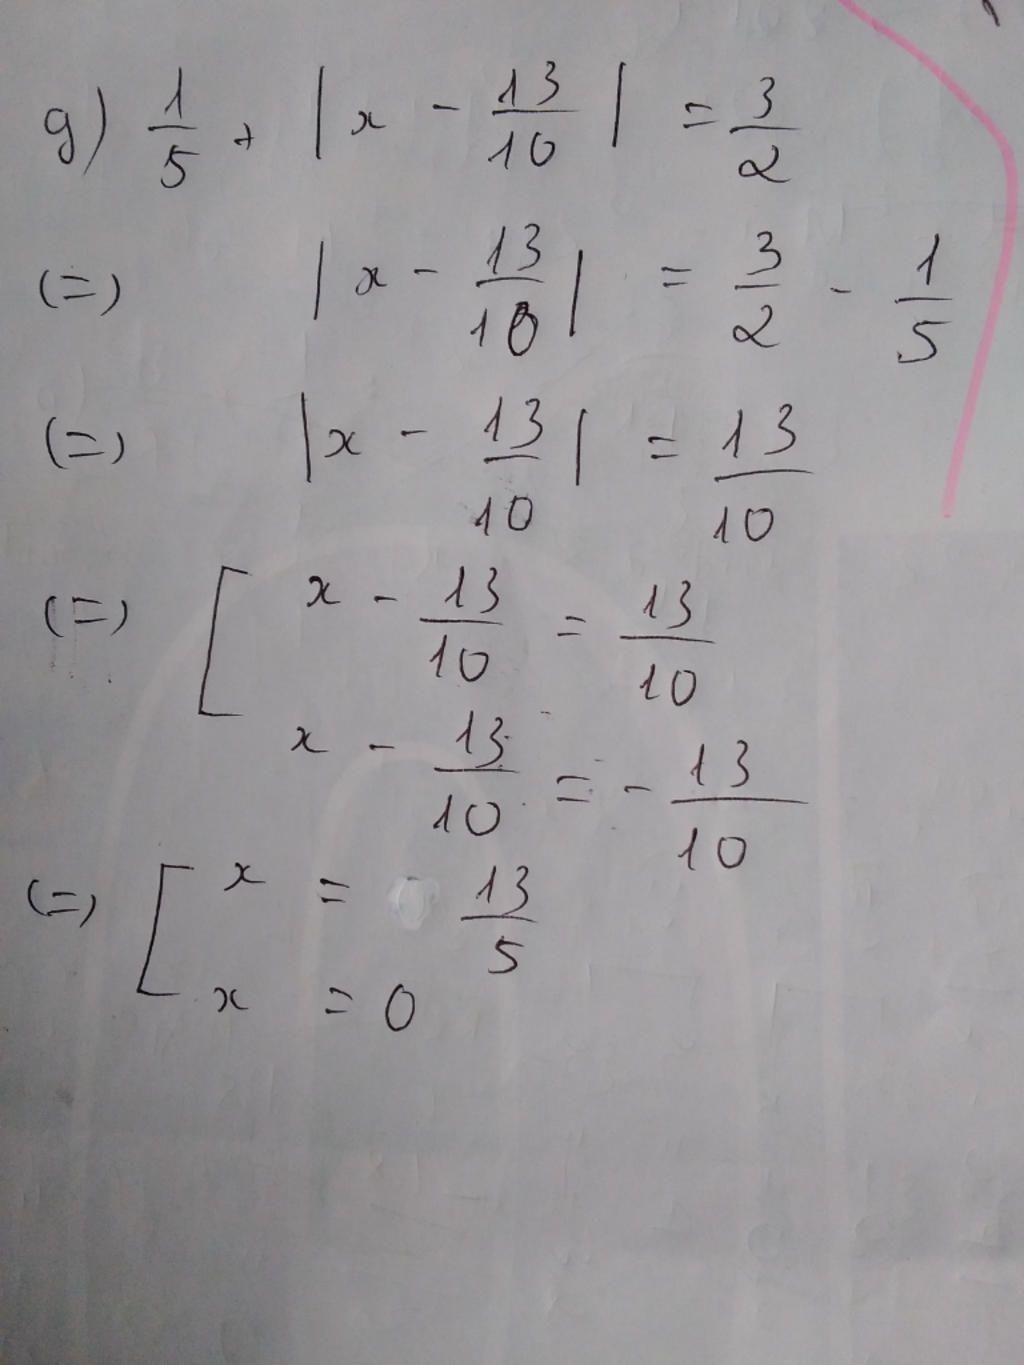 g) 1/5 + |x - 13/10| = 3/2
(=) |x - 13/10| = 3/2 - 1/5
(=) |x - 13/10| = 13/10
(=) [ x - 13/10 = 13/10
x - 13/10 = - 13/10
(=) [ x = 13/5
x = 0